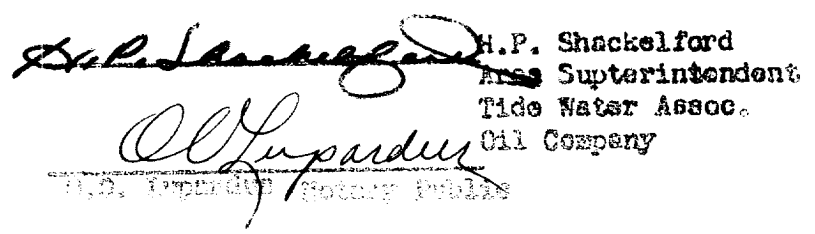 H.P. Shackelford H.P. Shackelford
Area Supterintendent
Tide Water Assoc.
O O Lupardus Oil Company
O.O. Lupardus Notary Public